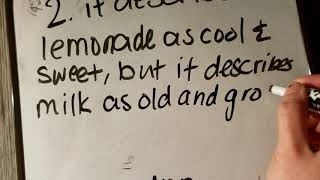 2. it describes
lemonade as cool &
sweet, but it describes
milk as old and gro